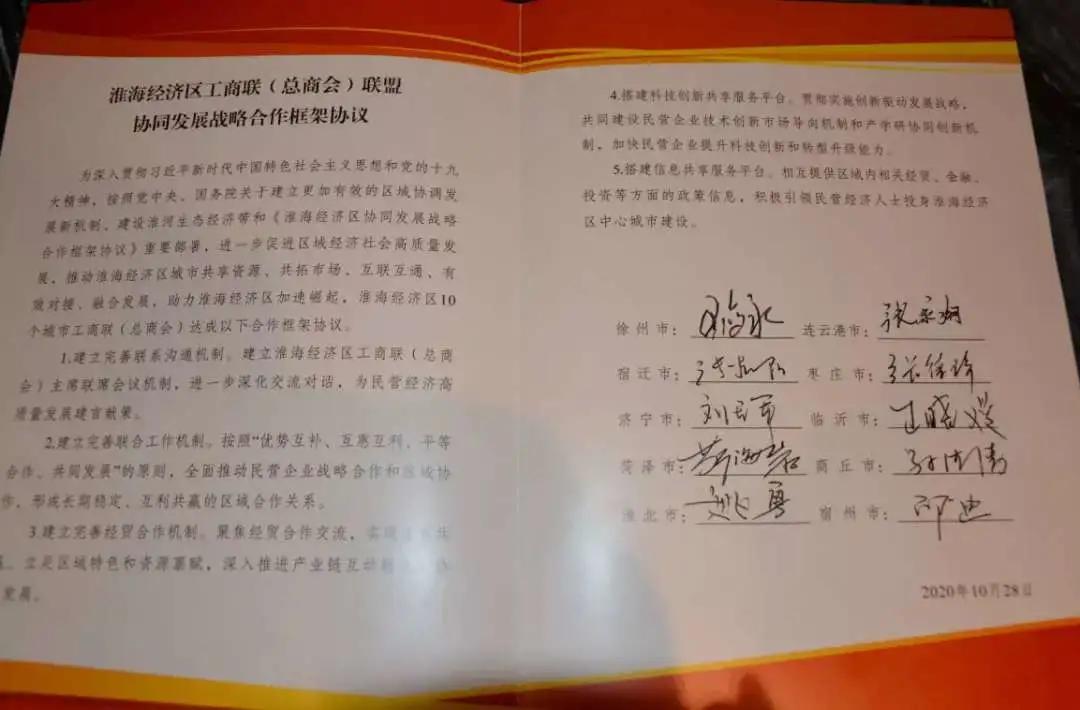 淮海经济区工商联（总商会）联盟
协同发展战略合作框架协议
为深入贯彻习近平新时代中国特色社会主义思想和党的十九
大精神，按照党中央、国务院关于建立更加有效的区域协调发
展新机制、建设淮河生态经济带和《淮海经济区协同发展战略
合作框架协议》重要部署，进一步促进区域经济社会高质量发
展，推动淮海经济区城市共享资源、共拓市场、互联互通、有
效对接、融合发展，助力淮海经济区加速崛起，淮海经济区10
个城市工商联（总商会）达成以下合作框架协议。
1.建立完善联系沟通机制。建立淮海经济区工商联（总商
会）主席联席会议机制，进一步深化交流对话，为民营经济高
质量发展建言献策。
2.建立完善联合工作机制。按照“优势互补、互惠互利、平等
合作、共同发展”的原则，全面推动民营企业战略合作和区域协
作，形成长期稳定、互利共赢的区域合作关系。
3.建立完善经贸合作机制。聚焦经贸合作交流，实现
立足区域特色和资源禀赋，深入推进产业链互动
发展。
4.搭建科技创新共享服务平台。贯彻实施创新驱动发展战略，
共同建设民营企业技术创新市场导向机制和产学研协同创新机
制，加快民营企业提升科技创新和转型升级能力。
5.搭建信息共享服务平台。相互提供区域内相关经贸、金融、
投资等方面的政策信息，积极引领民营经济人士投身淮海经济
区中心城市建设。
徐州市： 连云港市：
宿迁市： 枣庄市：
济宁市： 临沂市：
菏泽市： 商丘市：
淮北市： 宿州市：
2020年10月28日